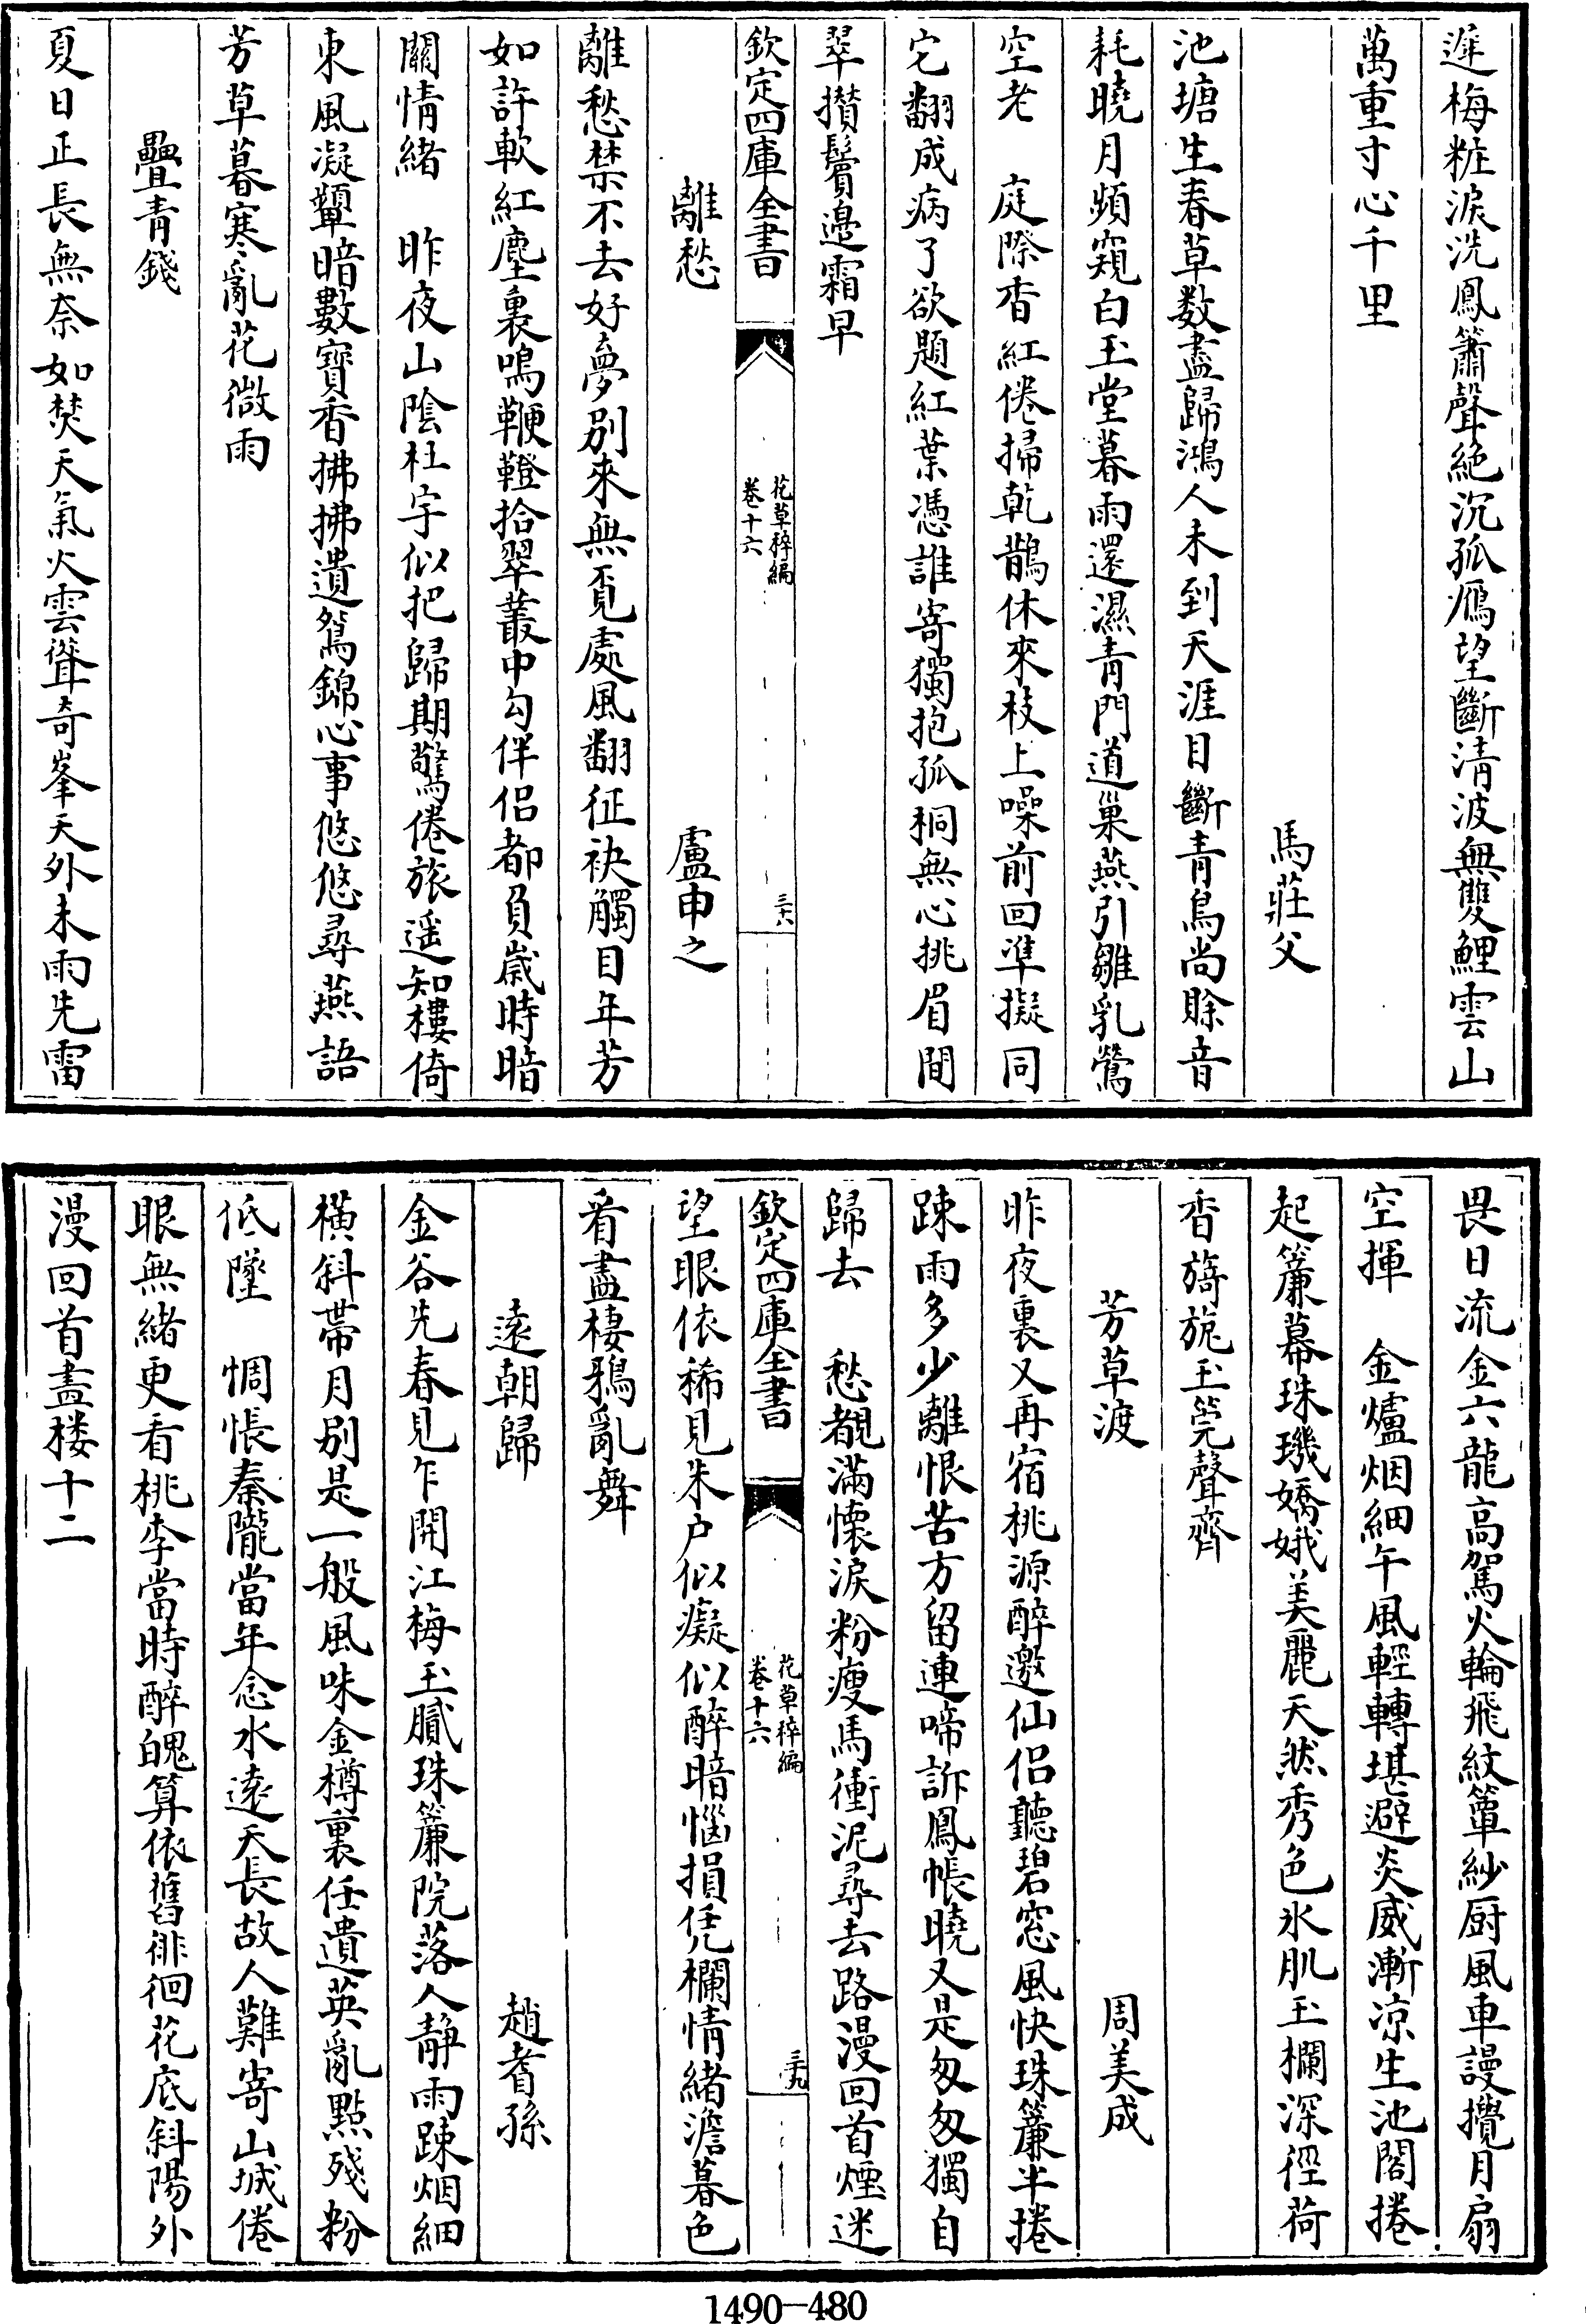 遲梅粧淚洗鳳簫聲絶沉孤鴈望斷清波無雙鯉雲山
萬重寸心千里
馬莊父
池塘生春草数盡歸鴻人未到天涯目斷青鳥尚賖音
耗曉月頻窺白玉堂暮雨還濕青門道巢燕引雛乳鶯
空老　庭際香紅倦掃乾鵲休來枝上噪前回凖擬同
它翻成病了欲題紅葉憑誰寄獨抱孤桐無心挑眉間
翠攅鬢邊霜早
欽定四庫全書
花草稡編
卷十六
三十八
離愁　盧申之
離愁禁不去好夢别來無覔處風翻征袂觸目年芳
如許軟紅塵裏鳴鞭鐙拾翠叢中勾伴侣都負歲時暗
關情緒　昨夜山陰杜宇似把歸期驚倦旅遥知樓倚
東風凝顰暗數寳香拂拂遺鴛錦心事悠悠尋燕語
芳草暮寒亂花微雨
疊青錢
夏日正長無奈如焚天氣火雲聳奇峯天外未雨先雷
畏日流金六龍高駕火輪飛紋簟紗厨風車謾攪月扇
空揮　金爐烟細午風輕轉堪避炎威漸凉生池閣捲
起簾幕珠璣嬌娥美麗天然秀色氷肌玉欄深徑荷
香旖旎玉筦聲齊
芳草渡　周美成
昨夜裏又再宿桃源醉邀仙侣聽碧窓風快珠簾半捲
踈雨多少離恨苦方留連啼訴鳳帳曉又是匆匆獨自
歸去　愁覩滿懐淚粉瘦馬衝泥尋去路漫回首煙迷
欽定四庫全書
花草稡編
卷十六
三十九
望眼依稀見朱户似癡似醉暗惱損凭欄情緒澹暮色
看盡棲鴉亂舞
遠朝歸　趙耆孫
金谷先春見乍開江梅玉膩珠簾院落人静雨踈烟細
橫斜帶月别是一般風味金樽裏任遺英亂點殘粉
低墜　惆悵秦隴當年念水遠天長故人難寄山城倦
眼無緒更看桃李當時醉魄算依舊徘徊花底斜陽外
漫回首盡楼十二
1490—480